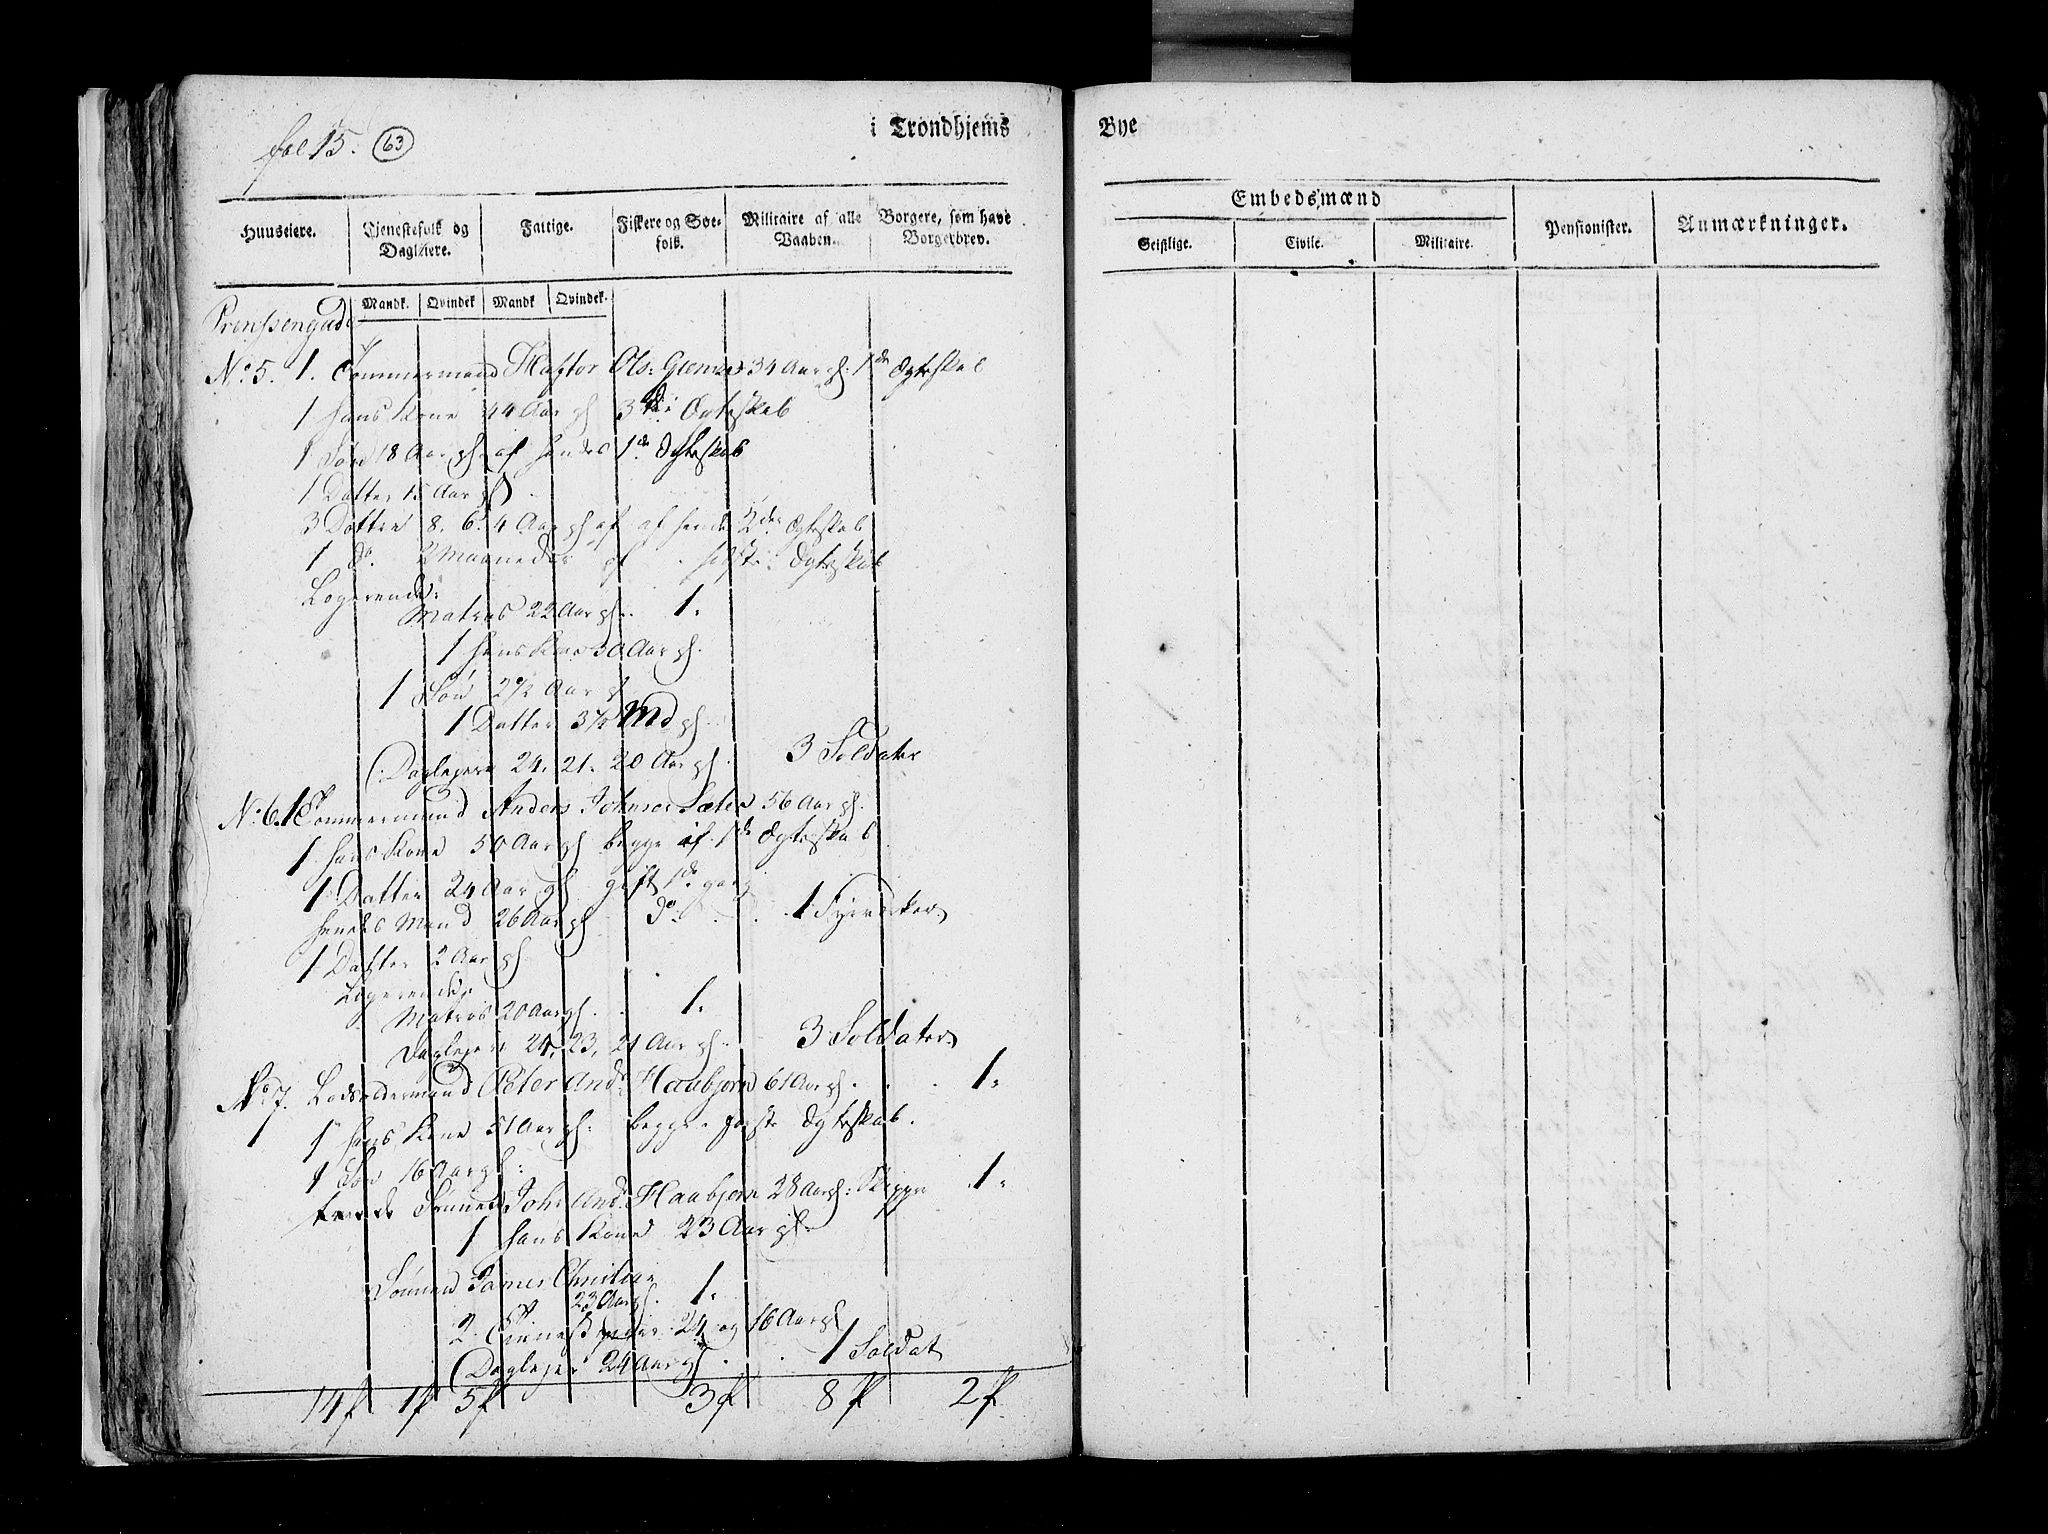 fol 15. 63
i Trondhjems Bye
Huuseiere. Tjenestefolk og Dagleiere. Fattige. Fiskere og Søefolk. Militaire af alle Vaaben. Borgere, som have Borgerbrev.
Embedsmænd
Geistlige. Civile. Militaire. Pensionister. Anmærkninger.
Mandk. Qvindek Mandk Qvindek.
Prinssengade
No 5. 1. Tømmermand Haftor Ols: 34 Aar gl: 1de Ægteskab
1 hans Kone 44 Aar gl 3die Ægteskab
1 Søn 18 Aar gl. af hendes 1de Ægteskab
1 Datter 15 Aar gl
3 Døttre 8. 6. 4 Aar gl af af hendes 2det Ægteskab
1 do. 2 Maaneder gl . sidste Ægteskab
Logerende:
Matros 22 Aar gl. 1.
1 hans Kone 30 Aar gl.
1 Søn 2½ Aar gl
1 Datter 3½ Md gl.
(Daglejere 24. 21. 20 Aar gl. 3 Soldater
No 6. 1 Tømmermand Anders Johnsen Sæter 56 Aar gl.
1 hans Kone 50 Aar gl begge af 1de Ægteskab
1 Datter 24 Aar gl gift 1de gang
hendes Mand 26 Aar gl do. 1 Fyrværker
1 Datter 2 Aar gl
Logerende,
Matros 20 Aar gl. 1.
Daglejere 24, 23, 21 Aar gl. 3 Soldater
No 7. Lodsoldermand Peter And: Haabjørn 61 Aar gl. 1.
1 1 hans Kone 51 Aar gl: begge første Ægteskab.
1 Søn 16 Aar gl:
Sønnen Joh: And: Haabjørn 28 Aar gl: Skipper 1.
1 hans Kone 23 Aar gl.
Sønnen James Christian 1.
23 Aar gl.
2 Tjenestepiger 24 og 16 Aar gl
(Daglejer 24 Aar gl 1 Soldat
14 f 1 f 5 f 3 f 8 f 2 f.